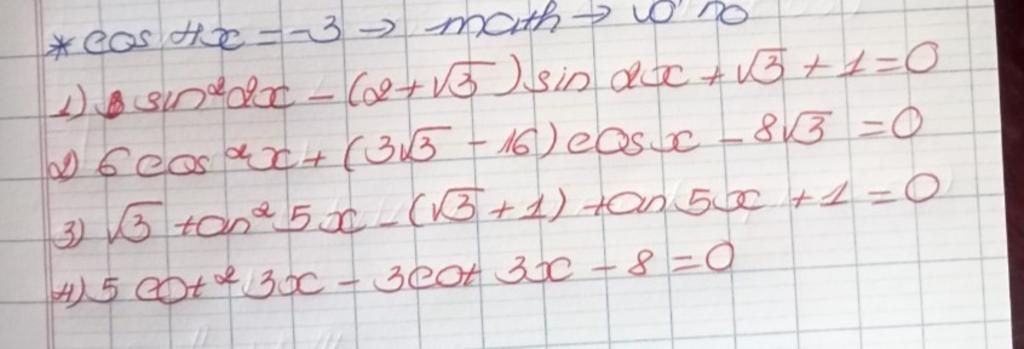 * cos 4x = -3 → math → vô no
1) sin²2x - (2+√3) sin 2x + √3 + 1 = 0
2) 6 cos²x + (3√3 - 16) cos x - 8√3 = 0
3) √3 tan² 5x - (√3 + 1) tan 5x + 1 = 0
4) 5 cot² 3x - 3 cot 3x - 8 = 0